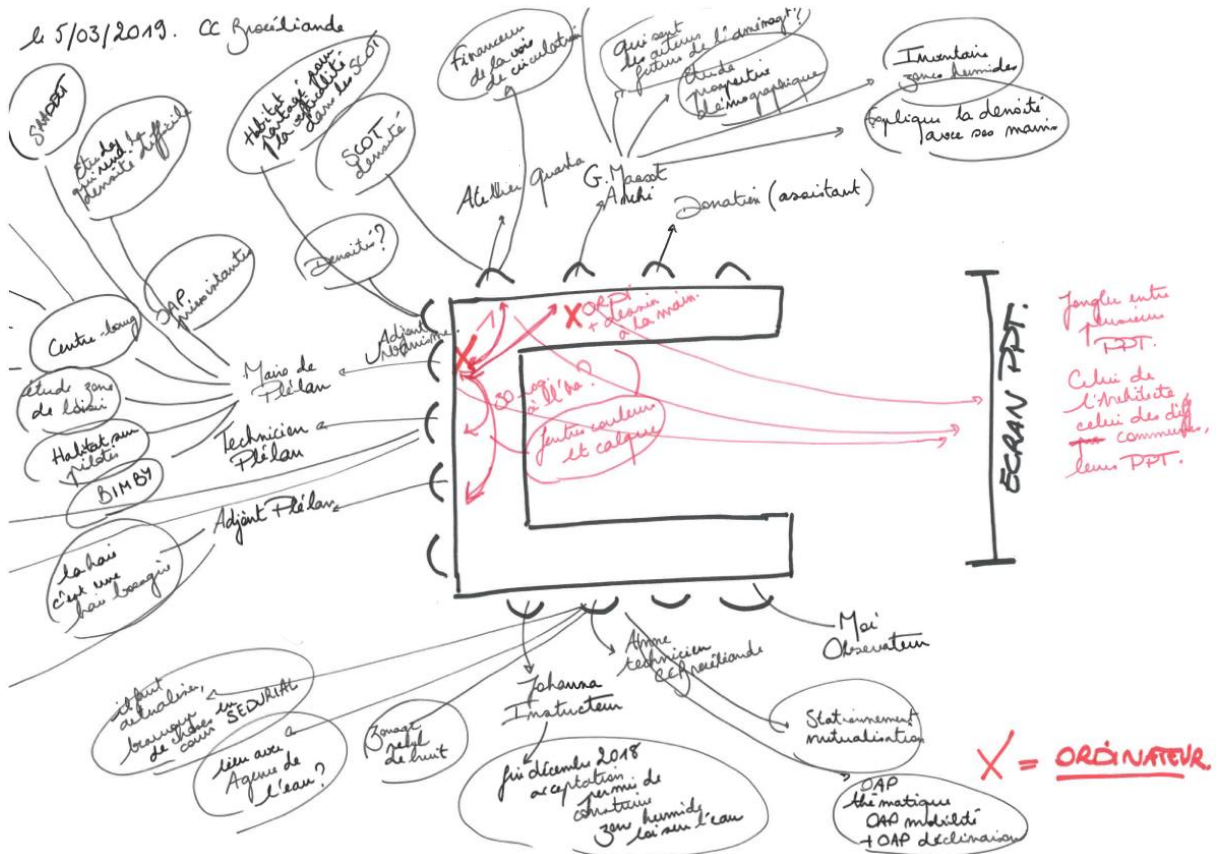 le 5/03/2019. CC Brocéliande
SMADDT
Etudes
qui rend la
densité difficile
Habitat
partagé pour
la
dans les SCOT
SCOT
densité
Financeur
de la voie
de circulation
Qui sont
les acteurs
futurs de l'aménagt?
Etude
prospective
démographique
Inventaire
zones humides
Explique la densité
avec ses mains
Atelier
G.
Archi
Donatien (assistant)
Densité?
OAP
préexistantes
Centre-bourg
étude zone
de loisir
Habitat sur
pilotis
BIMBY
Maire de
Plélan
Adjoint
urbanisme.
Technicien
Plélan
Adjoint Plélan
la haie
c'est une
haie bocagère
X ORDI
+ dessin
à la main.
30 log
à l'ha?
feutres couleurs
et calque
ECRAN PPT.
Jongler entre
plusieurs
PPT.
Celui de
l'Architecte,
celui des diff
communes,
leurs PPT.
Moi
Observateur
technicien
CC Brocéliande
Johanna
Instructeur
il faut
actualiser,
beaucoup
de choses en
cours SEDURIAL
lien avec
Agence de
l'eau?
zonage
de bruit
fin décembre 2018
acceptation
permis de
construire
zone humide
loi sur l'eau
Stationnement
mutualisation
OAP
thématique
OAP mobilité
+ OAP déclinaison
X = ORDINATEUR.